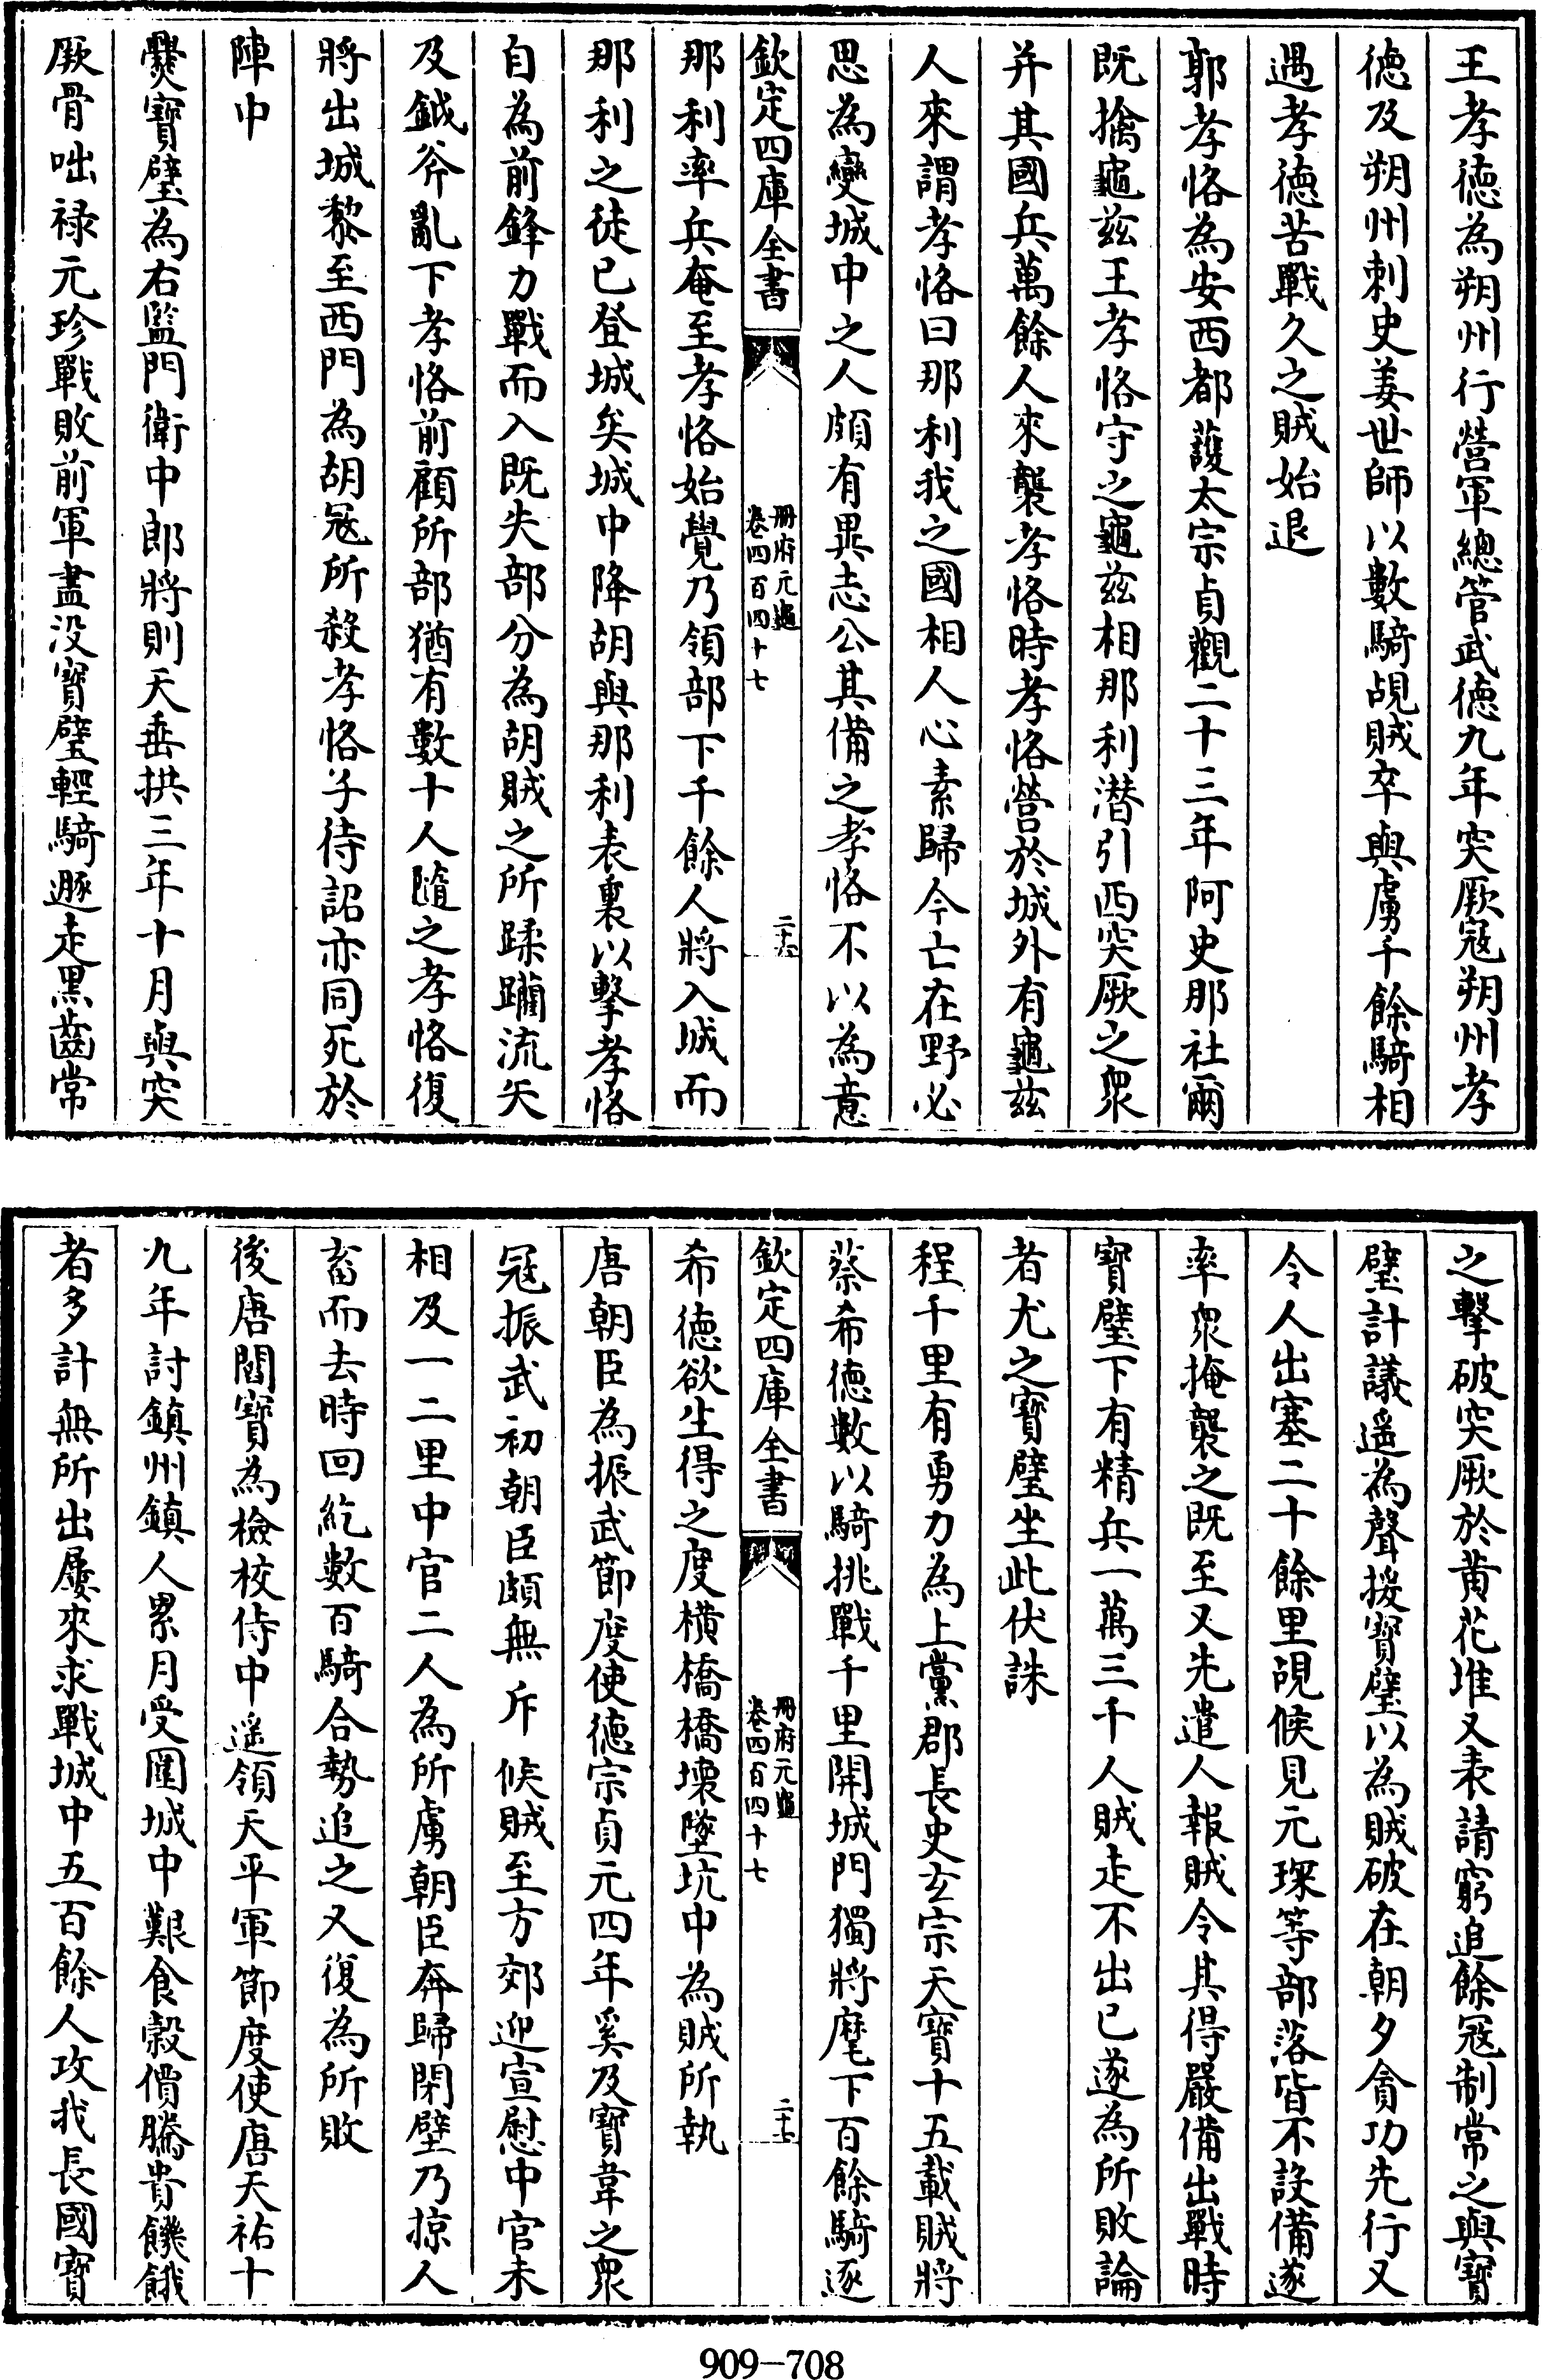 王孝徳為朔州行營軍總管武徳九年突厥冦朔州孝
徳及朔州刺史姜世師以數騎覘賊卒與虜千餘騎相
遇孝徳苦戰久之賊始退
郭孝恪為安西都䕶太宗貞觀二十三年阿史那社爾
既擒龜茲王孝恪守之龜茲相那利潜引西突厥之衆
并其國兵萬餘人來襲孝恪時孝恪營於城外有龜茲
人來謂孝恪曰那利我之國相人心素歸今亡在野必
思為變城中之人頗有異志公其備之孝恪不以為意
欽定四庫全書
冊府元龜
卷四百四十七
二十六
那利率兵奄至孝恪始覺乃領部下千餘人將入城而
那利之徒已登城矣城中降胡與那利表裏以擊孝恪
自為前鋒力戰而入既失部分為胡賊之所蹂躪流矢
及鉞斧亂下孝恪前顧所部猶有數十人隨之孝恪復
將出城黎至西門為胡冦所殺孝恪子待詔亦同死於
陣中
爨寳璧為右監門衛中郎將則天垂拱三年十月與突
厥骨咄禄元珍戰敗前軍盡沒寳璧輕騎遯走黒齒常
之擊破突厥於黄花堆又表請窮追餘冦制常之與寳
璧計議遥為聲援寳璧以為賊破在朝夕貪功先行又
令人出塞二十餘里覘候見元琛等部落皆不設備遂
率衆掩襲之既至又先遣人報賊令其得嚴備出戰時
寳璧下有精兵一萬三千人賊走不出已遂為所敗論
者尤之寳璧坐此伏誅
程千里有勇力為上黨郡長史玄宗天寳十五載賊將
蔡希徳數以騎挑戰千里開城門獨將麾下百餘騎逐
欽定四庫全書
冊府元龜
卷四百四十七
二十七
希徳欲生得之度横橋橋壊墜坑中為賊所執
唐朝臣為振武節度使徳宗貞元四年奚及寳韋之衆
冦振武初朝臣頗無斥候賊至方郊迎宣慰中官未
相及一二里中官二人為所虜朝臣奔歸閉壁乃掠人
畜而去時回紇數百騎合勢追之又復為所敗
後唐閻寳為檢校侍中遥領天平軍節度使唐天祐十
九年討鎮州鎮人累月受圍城中艱食穀價騰貴饑餓
者多計無所出屢來求戰城中五百餘人攻我長國寳
909-708